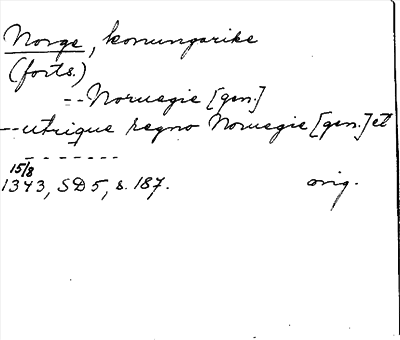 Norge, konungarike
(forts.)
--Noruegie [gen.]
--utrique regno Noruegie [gen.] et
-------
15/8
1343, SD5, s. 187. orig.